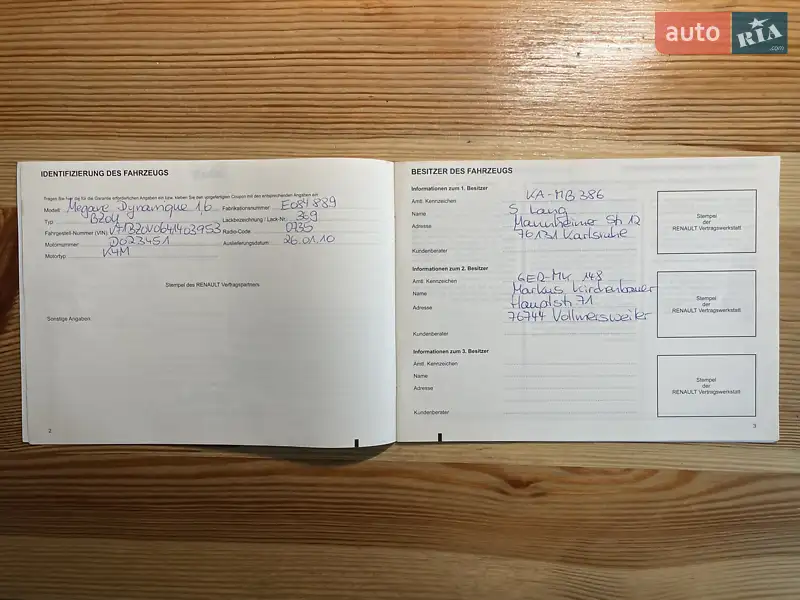 auto RIA .com
IDENTIFIZIERUNG DES FAHRZEUGS
Tragen Sie hier die für die Garantie erforderlichen Angaben ein bzw. kleben Sie den angefertigten Coupon mit den entsprechenden Angaben ein
Modell Megane Dynamique 1.6 Fabrikationsnummer E084889
Typ BZ0U Lackbezeichnung / Lack-Nr. 369
Fahrgestell-Nummer (VIN) Radio-Code
Motornummer D023451 Auslieferungsdatum 26.01.10
Motortyp K4M
Stempel des RENAULT Vertragspartners
Sonstige Angaben
2
BESITZER DES FAHRZEUGS
Informationen zum 1. Besitzer
Amtl. Kennzeichen KA-MB 386
Name S. Lang
Adresse Mannheimer Str 12
76131 Karlsruhe
Kundenberater
Stempel
der
RENAULT Vertragswerkstatt
Informationen zum 2. Besitzer
Amtl. Kennzeichen GER-MK 148
Name Markus Kirchenbauer
Adresse Hauptstr 71
76744 Vollmersweiler
Kundenberater
Stempel
der
RENAULT Vertragswerkstatt
Informationen zum 3. Besitzer
Amtl. Kennzeichen
Name
Adresse
Kundenberater
Stempel
der
RENAULT Vertragswerkstatt
3